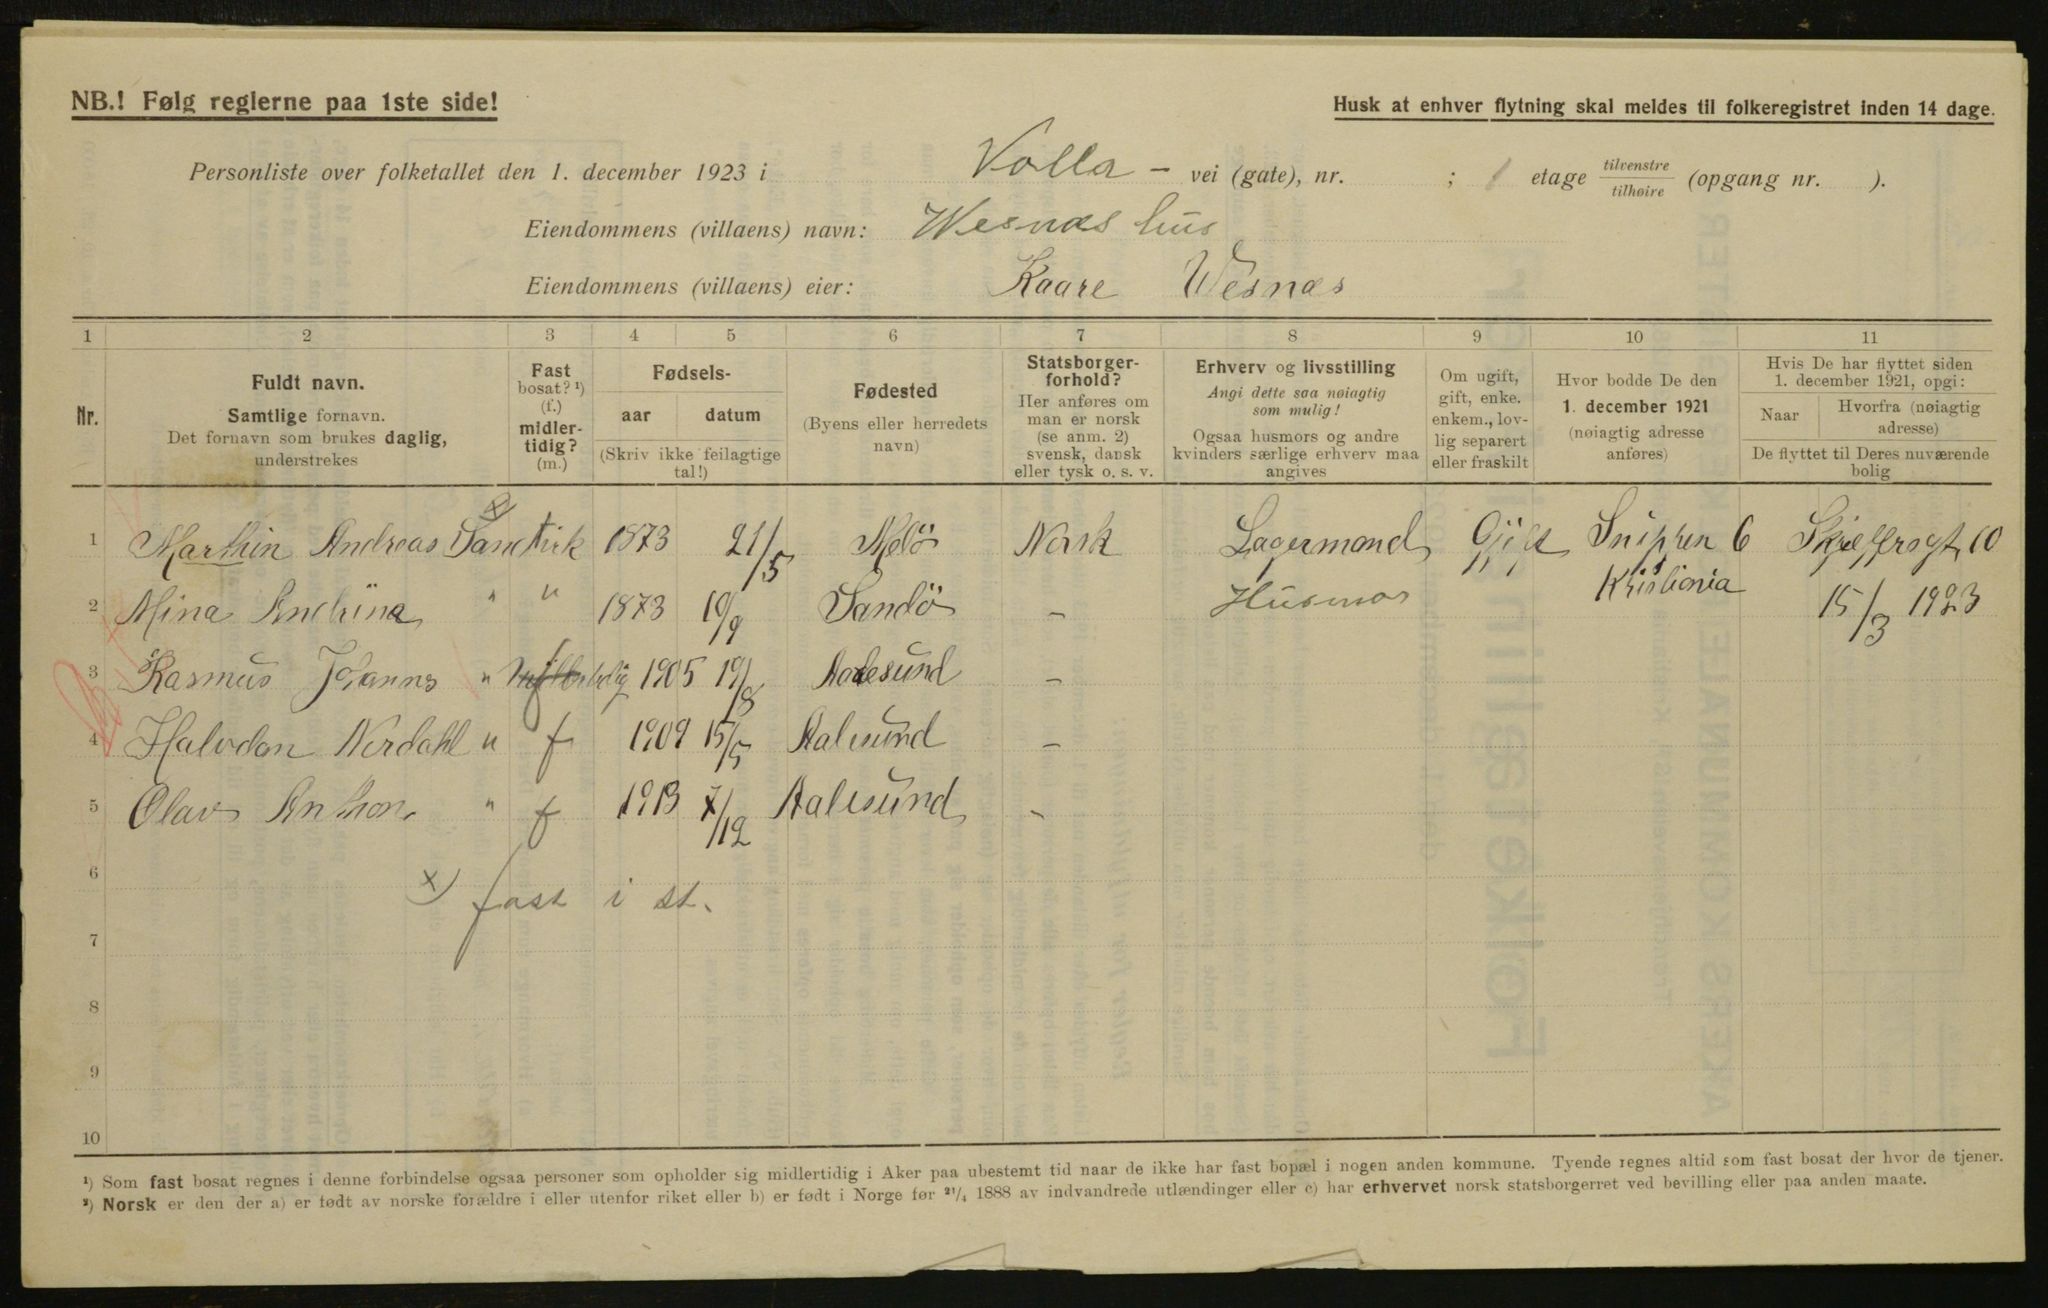 NB.! Følg reglerne paa 1ste side!
Husk at enhver flytning skal meldes til folkeregistret inden 14 dage.
Personliste over folketallet den 1. december 1923 i Volla - vei (gate), nr. ; 1 etage tilvenstre tilhøire (opgang nr. ).
Eiendommens (villaens) navn: Wesnæs hus
Eiendommens (villaens) eier: Kaare Wesnæs
1 2 3 4 5 6 7 8 9 10 11
Nr.
Fuldt navn.
Samtlige fornavn.
Det fornavn som brukes daglig,
understrekes
Fast
bosat? ¹)
(f.)
midler-
tidig?
(m.)
Fødsels-
aar datum
(Skriv ikke feilagtige
tal!)
Fødested
(Byens eller herredets
navn)
Statsborger-
forhold?
Her anføres om
man er norsk
(se anm. 2)
svensk, dansk
eller tysk o. s. v.
Erhverv og livsstilling
Angi dette saa nøiagtig
som mulig!
Ogsaa husmors og andre
kvinders særlige erhverv maa
angives
Om ugift,
gift, enke.
enkem., lov-
lig separert
eller fraskilt
Hvor bodde De den
1. december 1921
(nøiagtig adresse
anføres)
Hvis De har flyttet siden
1. december 1921, opgi:
Naar Hvorfra (nøiagtig
adresse)
De flyttet til Deres nuværende
bolig
x)
1 Marthin Andreas 1873 21/5 Norsk Lagermand Gift 6 10
2 Mina Andrina " " 1873 10/9 Sandö - Husmor Kristiania 15/3 1923
3 Rasmus Johannes " f 1905 19/8 Aalesund -
4 Halvdan Nordahl " f 1909 15/5 Aalesund -
5 Olav Anthon " f 1913 7/12 Aalesund -
6
x) fast i st.
7
8
9
10
¹) Som fast bosat regnes i denne forbindelse ogsaa personer som opholder sig midlertidig i Aker paa ubestemt tid naar de ikke har fast bopæl i nogen anden kommune. Tyende regnes altid som fast bosat der hvor de tjener.
²) Norsk er den der a) er født av norske forældre i eller utenfor riket eller b) er født i Norge før 21/4 1888 av indvandrede utlændinger eller c) har erhvervet norsk statsborgerret ved bevilling eller paa anden maate.